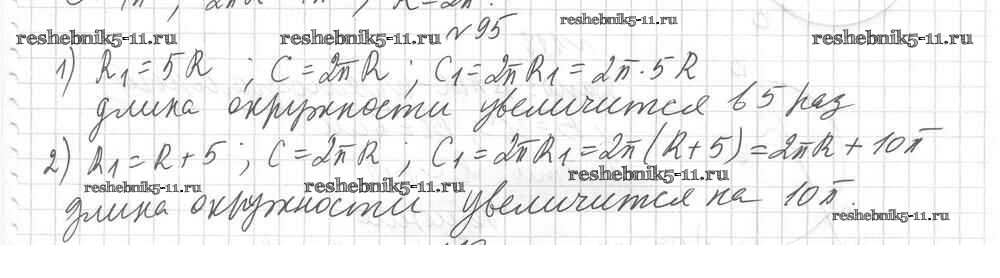 reshebnik5-11.ru
reshebnik5-11.ru reshebnik5-11.ru №95 reshebnik5-11.ru
1) R₁=5R ; C=2πR ; C₁=2πR₁=2π·5R
длина окружности увеличится в 5 раз
2) R₁=R+5 ; C=2πR ; C₁=2πR₁=2π(R+5)=2πR+10π
reshebnik5-11.ru reshebnik5-11.ru reshebnik5-11.ru
длина окружности увеличится на 10π.
reshebnik5-11.ru